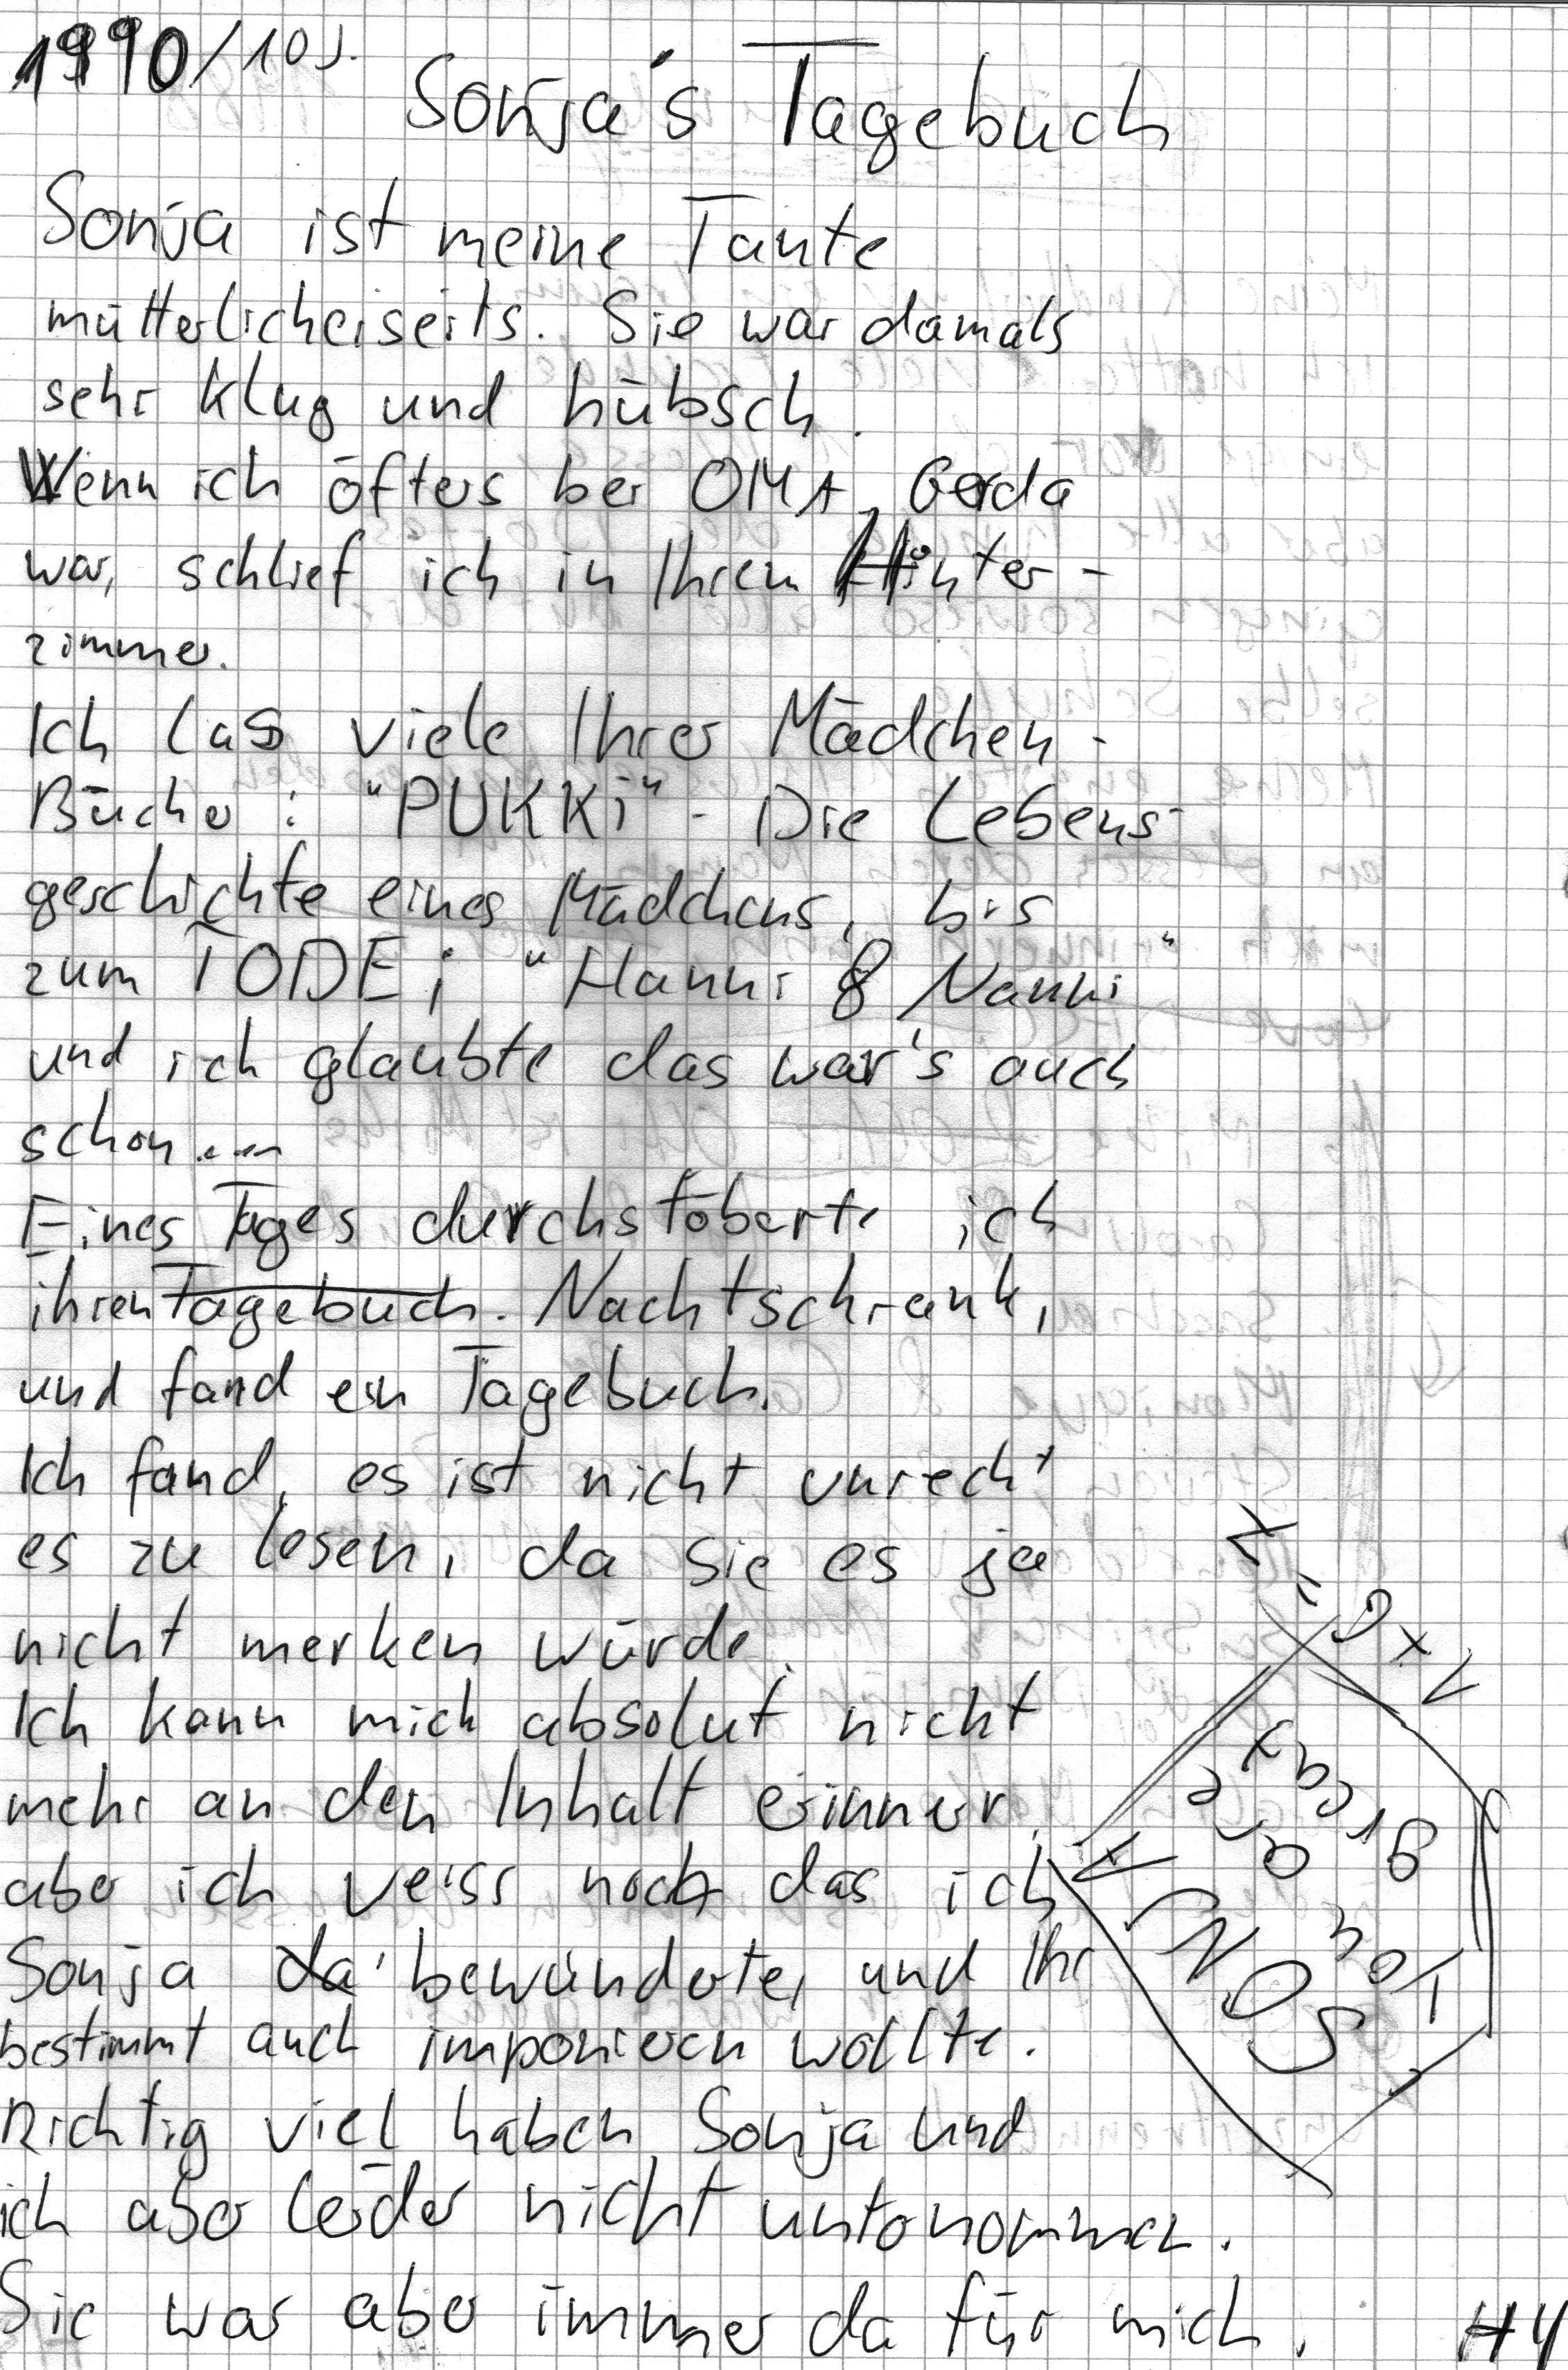 1990/10J.
Sonja's Tagebuch
Sonja ist meine Tante
mütterlicheiseits. Sie war damals
sehr klug und hübsch.
Wenn ich öfters bei OMA, Gerda
war, schlief ich in Ihrem Hinter-
zimmer.
Ich las viele Ihrer Mädchen-
Bücher: "PUKKi" - Die Lebens-
geschichte eines Mädchens, bis
zum TODE; "Hanni & Nanni"
und ich glaubte das war's auch
schon....
Eines Tages durchstöberte ich
ihren Tagebuch. Nachtschrank,
und fand ein Tagebuch.
Ich fand, es ist nicht unrecht
es zu lesen, da sie es ja
nicht merken würde.
Ich kann mich absolut nicht
mehr an den Inhalt erinner,
aber ich weiss noch das ich
Sonja da' bewunderte, und Ihr
bestimmt auch imponieren wollte.
Richtig viel haben Sonja und
ich aber leider nicht unternommen.
Sie war aber immer da für mich.
SONJA
You are
great
H4